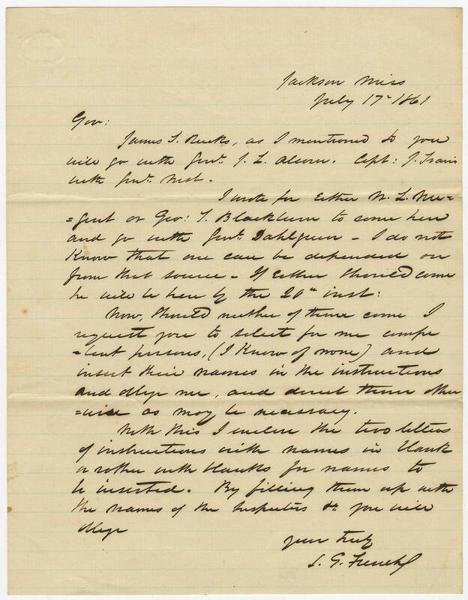 Jackson Miss
July 17 1861
Gov:
James S. Rucks, as I mentioned to you
will go with Genl. J. L. Alcorn. Capt: J. Travis
with Genl. West.
I wrote for either W. L. Nu-
=gent or Geo: T. Blackburn to come here
and go with Genl. Dahlgren - I do not
know that one can be depended on
from that source - If either should come
he will be here by the 20th inst:
Now, should neither of them come I
request you to select for me compe
=tent persons, (I know of none) and
insert their names in the instructions
and oblige me, and direct them other
=wise as may be necessary.
With this I enclose the two letters
of instructions with names in blank
or rather with blanks for names to
be inserted. By filling them up with
the names of the Inspectors &c you will
oblige
your truly
S. G. French